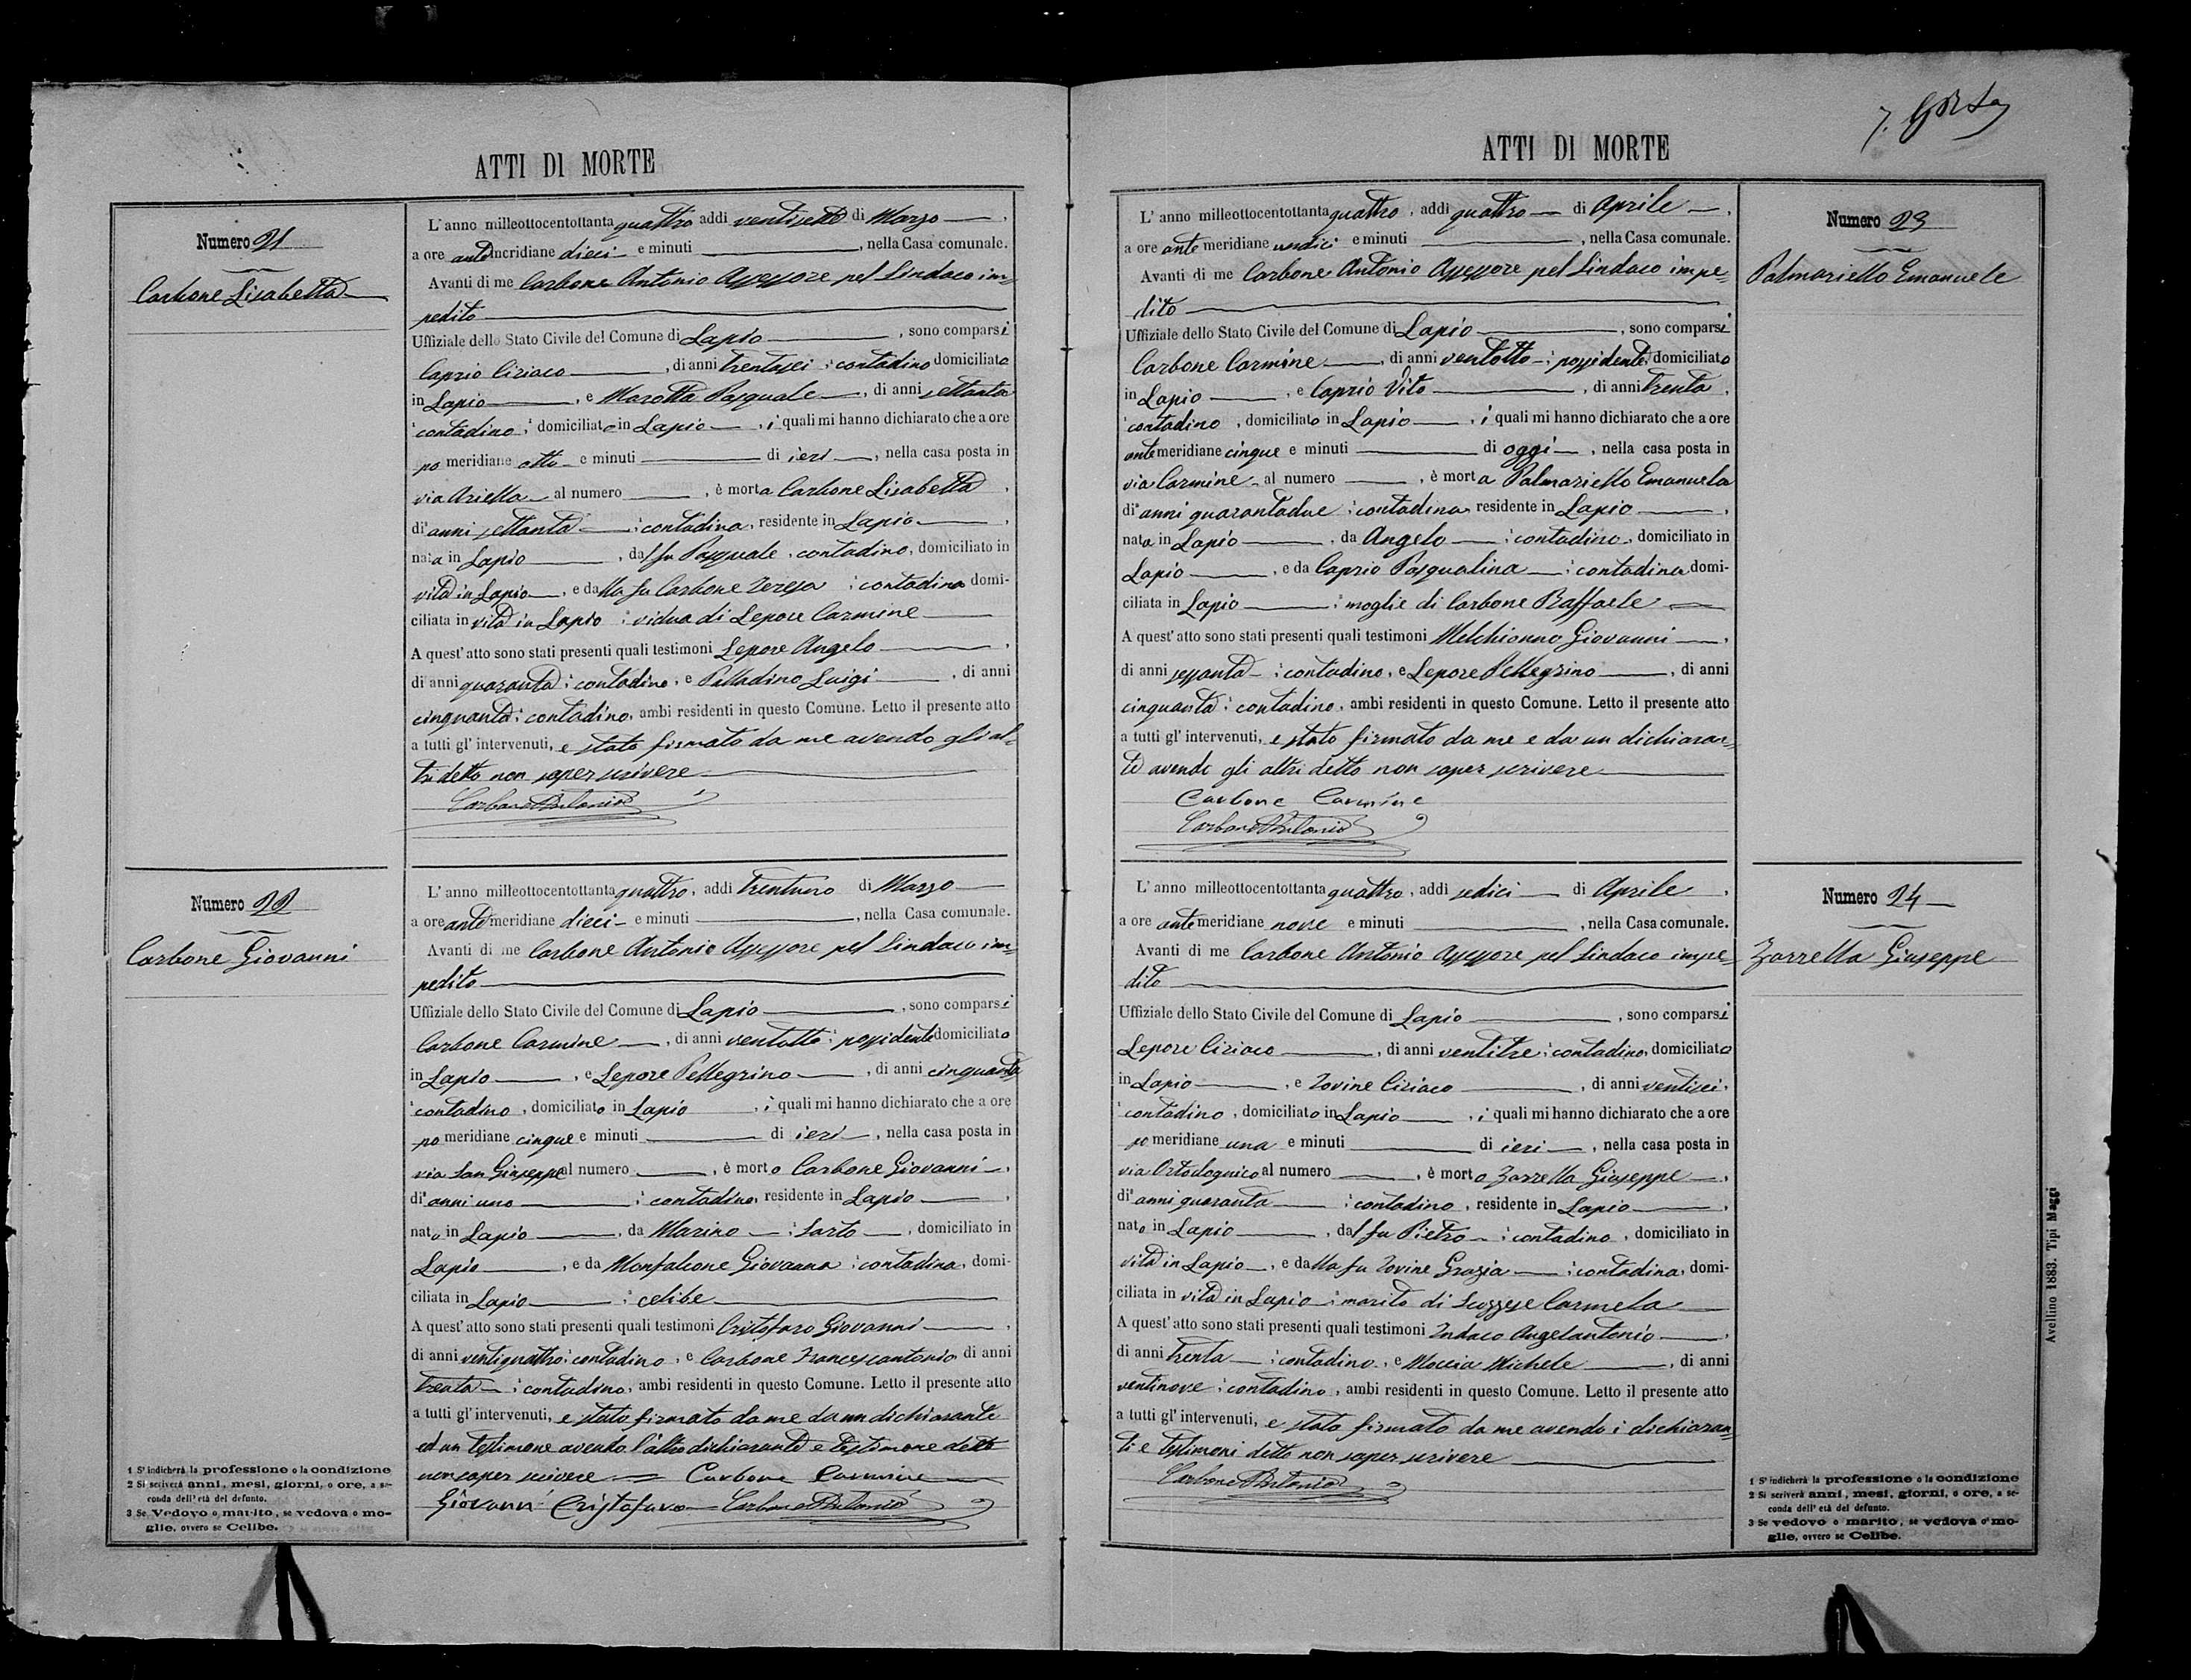 ATTI DI MORTE
Numero 21
Carbone Lisabetta
L'anno milleottocentottanta quattro addì ventisette di Marzo
a ore ante meridiane dieci e minuti , nella Casa comunale.
Avanti di me Carbone Antonio Assessore pel Sindaco im-
pedito
Uffiziale dello Stato Civile del Comune di Lapio , sono comparsi
Caprio Ciriaco , di anni trentasei , contadino domiciliato
in Lapio , e Marotta Pasquale , di anni settanta
contadino , domiciliato in Lapio , i quali mi hanno dichiarato che a ore
po meridiane otto e minuti di ieri , nella casa posta in
via Ariella al numero , è morta Carbone Lisabetta ,
di anni settanta , contadina , residente in Lapio ,
nata in Lapio , dal fu Pasquale , contadino , domiciliato in
vita in Lapio , e dalla fu Carbone Teresa , contadina domi-
ciliata in vita in Lapio , vidua di Lepore Carmine
A quest'atto sono stati presenti quali testimoni Lepore Angelo ,
di anni quaranta , contadino , e Palladino Luigi , di anni
cinquanta , contadino , ambi residenti in questo Comune. Letto il presente atto
a tutti gl'intervenuti, e stato firmato da me avendo gli al-
tri detto non saper scrivere
Carbone Antonio
Numero 22
Carbone Giovanni
L'anno milleottocentottanta quattro , addì trentuno di Marzo
a ore ante meridiane dieci e minuti , nella Casa comunale.
Avanti di me Carbone Antonio Assessore pel Sindaco im-
pedito
Uffiziale dello Stato Civile del Comune di Lapio , sono comparsi
Carbone Carmine , di anni ventotto , possidente domiciliato
in Lapio , e Lepore Pellegrino , di anni cinquanta
contadino , domiciliato in Lapio , i quali mi hanno dichiarato che a ore
po meridiane cinque e minuti di ieri , nella casa posta in
via San Giuseppe al numero , è morto Carbone Giovanni ,
di anni uno , contadino , residente in Lapio ,
nato in Lapio , da Marino , sarto , domiciliato in
Lapio , e da Monfalcone Giovanna , contadina , domi-
ciliata in Lapio , celibe
A quest'atto sono stati presenti quali testimoni Cristofaro Giovanni ,
di anni ventiquattro , contadino , e Carbone Francescantonio di anni
trenta , contadino , ambi residenti in questo Comune. Letto il presente atto
a tutti gl'intervenuti, e stato firmato da me da un dichiarante
ed un testimone avendo l'altro dichiarante e testimone detto
non saper scrivere Carbone Carmine
Giovanni Cristofaro Carbone Antonio
1 S'indicherà la professione o la condizione
2 Si scriverà anni, mesi, giorni, o ore, a se-
conda dell'età del defunto.
3 Se Vedovo o marito, se vedova o mo-
glie, ovvero se Celibe.
ATTI DI MORTE
Numero 23
Palmariello Emanuele
L'anno milleottocentottanta quattro , addì quattro di Aprile ,
a ore ante meridiane undici e minuti , nella Casa comunale.
Avanti di me Carbone Antonio Assessore pel Sindaco impe-
dito
Uffiziale dello Stato Civile del Comune di Lapio , sono comparsi
Carbone Carmine , di anni ventotto , possidente domiciliato
in Lapio , e Caprio Vito , di anni trenta ,
contadino , domiciliato in Lapio , i quali mi hanno dichiarato che a ore
ante meridiane cinque e minuti di oggi , nella casa posta in
via Carmine al numero , è morta Palmariello Emanuela
di anni quarantadue , contadina , residente in Lapio ,
nata in Lapio , da Angelo , contadino , domiciliato in
Lapio , e da Caprio Pasqualina , contadina domi-
ciliata in Lapio , moglie di Carbone Raffaele
A quest'atto sono stati presenti quali testimoni Melchionno Giovanni ,
di anni sessanta , contadino , e Lepore Pellegrino , di anni
cinquanta , contadino , ambi residenti in questo Comune. Letto il presente atto
a tutti gl'intervenuti, e stato firmato da me e da un dichiaran-
te avendo gli altri detto non saper scrivere
Carbone Carmine
Carbone Antonio
Numero 24
Zarrella Giuseppe
L'anno milleottocentottanta quattro , addì sedici di Aprile ,
a ore ante meridiane nove e minuti , nella Casa comunale.
Avanti di me Carbone Antonio Assessore pel Sindaco impe-
dito
Uffiziale dello Stato Civile del Comune di Lapio , sono comparsi
Lepore Ciriaco , di anni ventitre , contadino , domiciliato
in Lapio , e Iovine Ciriaco , di anni ventisei ,
contadino , domiciliato in Lapio , i quali mi hanno dichiarato che a ore
po meridiane una e minuti di ieri , nella casa posta in
via al numero , è morto Zarrella Giuseppe ,
di anni quaranta , contadino , residente in Lapio ,
nato in Lapio , dal fu Pietro , contadino , domiciliato in
vita in Lapio , e dalla fu Iovine Grazia , contadina , domi-
ciliata in vita in Lapio , marito di Scozzese Carmela
A quest'atto sono stati presenti quali testimoni Indaco Angelantonio ,
di anni trenta , contadino , e Moccia Michele , di anni
ventinove , contadino , ambi residenti in questo Comune. Letto il presente atto
a tutti gl'intervenuti, e stato firmato da me avendo i dichiaran-
ti e testimoni detto non saper scrivere
Carbone Antonio
1 S'indicherà la professione o la condizione
2 Si scriverà anni, mesi, giorni, o ore, a se-
conda dell'età del defunto.
3 Se vedovo o marito, se vedova o mo-
glie, ovvero se Celibe.
Avellino 1883. Tipi Maggi